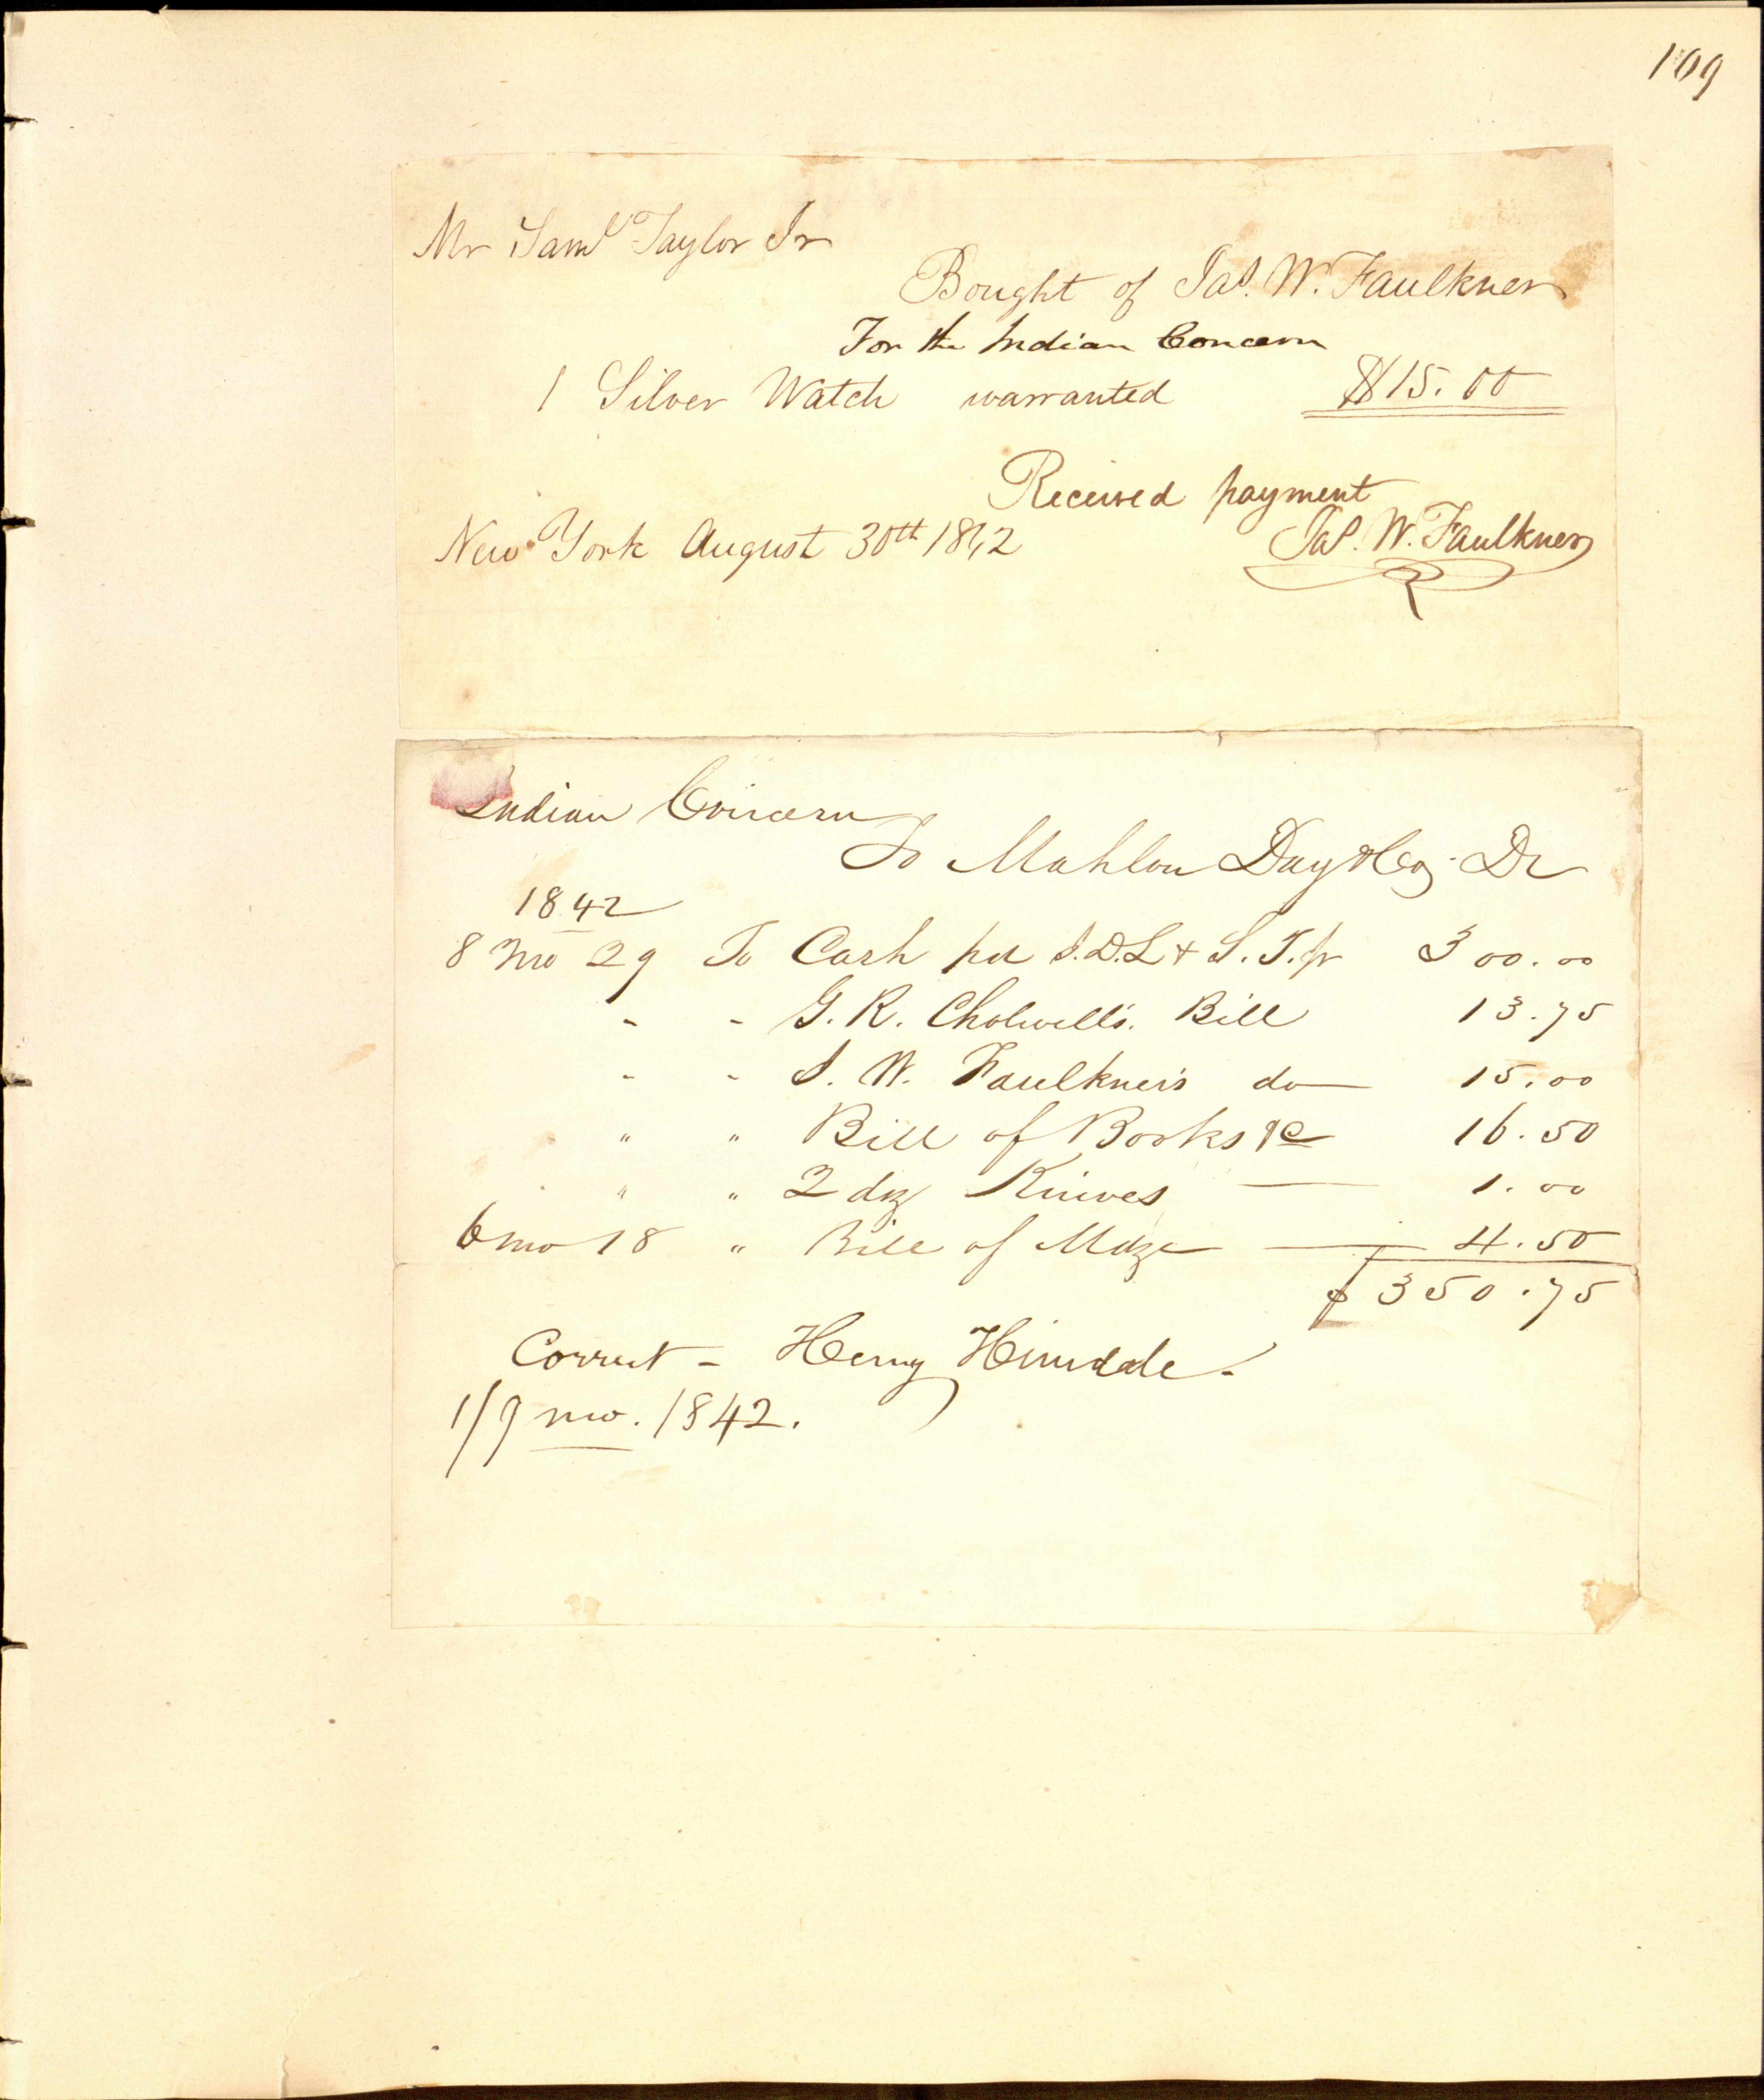 109
Mr Saml Taylor Jr
Bought of Jas. W. Faulkner
For the Indian Concern
1 Silver Watch warranted $15.00
Received payment
New York August 30th 1842
Jas. W. Faulkner
Indian Concern
To Mahlon Day & Co. Dr
1842
8 mo 29 To Cash pd J.D.L & S.T. Jr 300.00
- - G. R. Cholwell's Bill 13.75
- - J. W. Faulkner's do 15.00
" " Bill of Books &c 16.50
" " 2 doz Knives 1.00
6 mo 18 " Bill of Mdze 4.50
$350.75
Correct - Henry Hinsdale.
1/9 mo. 1842.